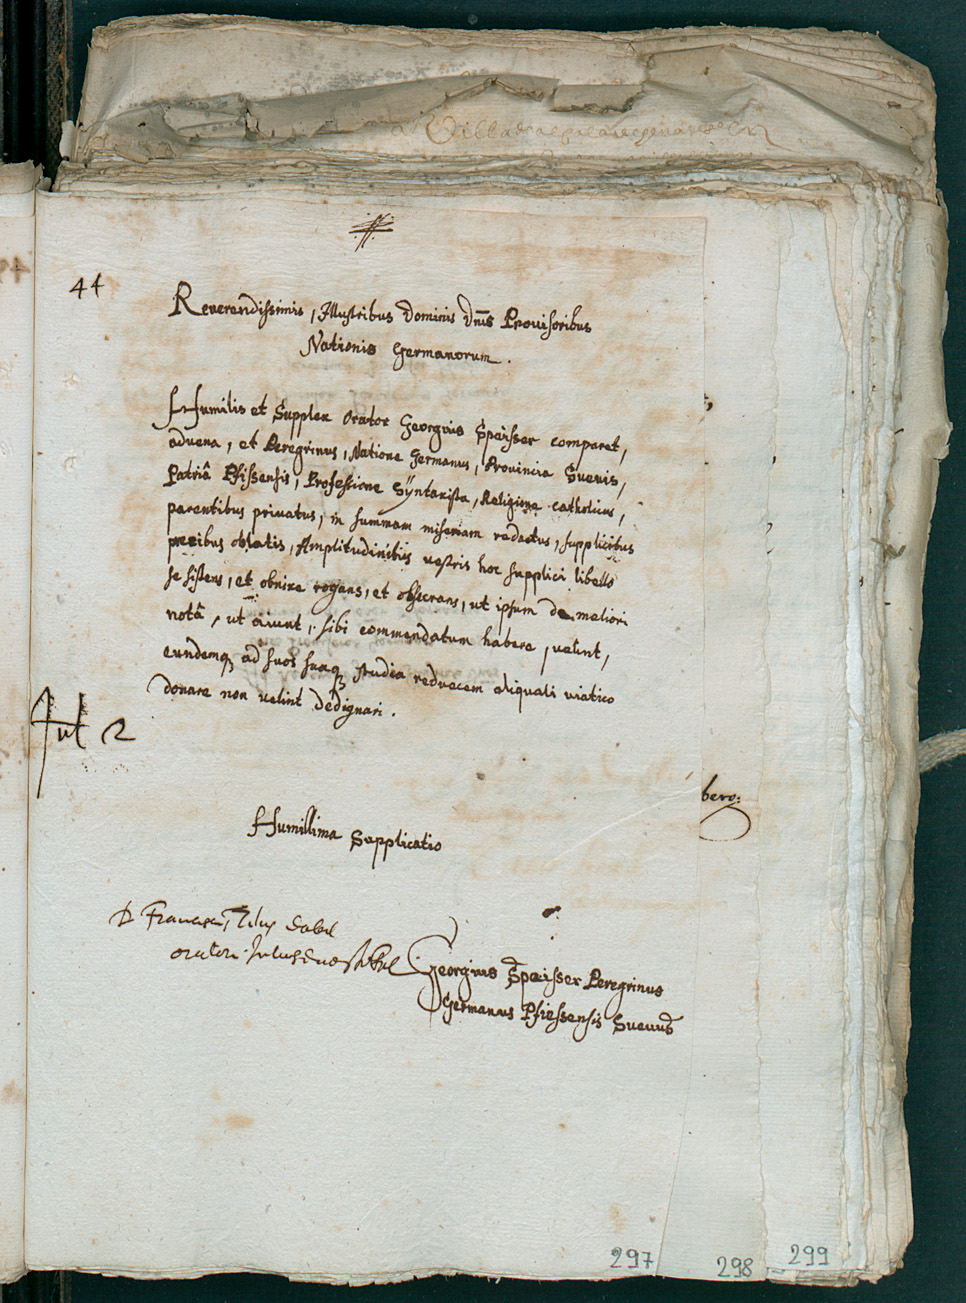 44
Reuerendissimis, Illustribus Dominis Dnis Prouisoribus
Nationis Germanorum.
Humilis et Supplex Orator Georgius Speisser comparet,
aduena, et Peregrinus, Natione Germanus, Prouincia Sueuis,
Patriâ Pfissensis, Professione Syntaxista, Religione catholicus,
parentibus priuatus, in summam miseriam redactus, supplicibus
precibus oblatis, Amplitudinibus vestris hoc supplici libello
se sistens, et obnixe rogans, et obsecrans, ut ipsum de meliori
notâ, ut aiunt, sibi commendatum habere, uelint,
eundemq ad suos suaq studia reducem aliquali uiatico
donare non uelint dedignari.
Jul 2
berg:
Humillima Supplicatio
D Francisco
oratori
Georgius Speisser Peregrinus
Germanus Pfiessensis Sueuus
297
298
299